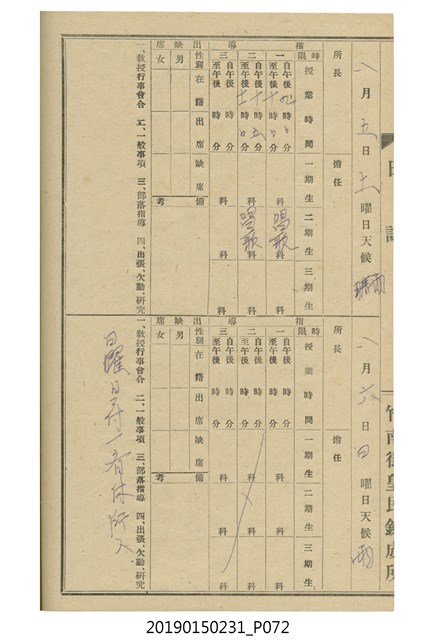 八月五日土曜日天候
所長
擔任
指導
時限
授業時間
一期生
二期生
三期生
一
自午前後 時 分
至午前後 時 分
科
唱歌科
科
二
自午前後 時 分
至午前後 時 分
科
唱歌科
科
三
自午前後 時 分
至午前後 時 分
科
科
科
出缺席
性別
在籍
出席
缺席
備考
男
女
一、教授行事會合 二、一般事項 三、部落指導 四、出張、欠勤、硏究
八月六日日曜日天候雨
所長
擔任
指導
時限
授業時間
一期生
二期生
三期生
一
自午前後 時 分
至午前後 時 分
科
科
科
二
自午前後 時 分
至午前後 時 分
科
科
科
三
自午前後 時 分
至午前後 時 分
科
科
科
出缺席
性別
在籍
出席
缺席
備考
男
女
一、教授行事會合 二、一般事項 三、部落指導 四、出張、欠勤、硏究
日曜日
20190150231_P072